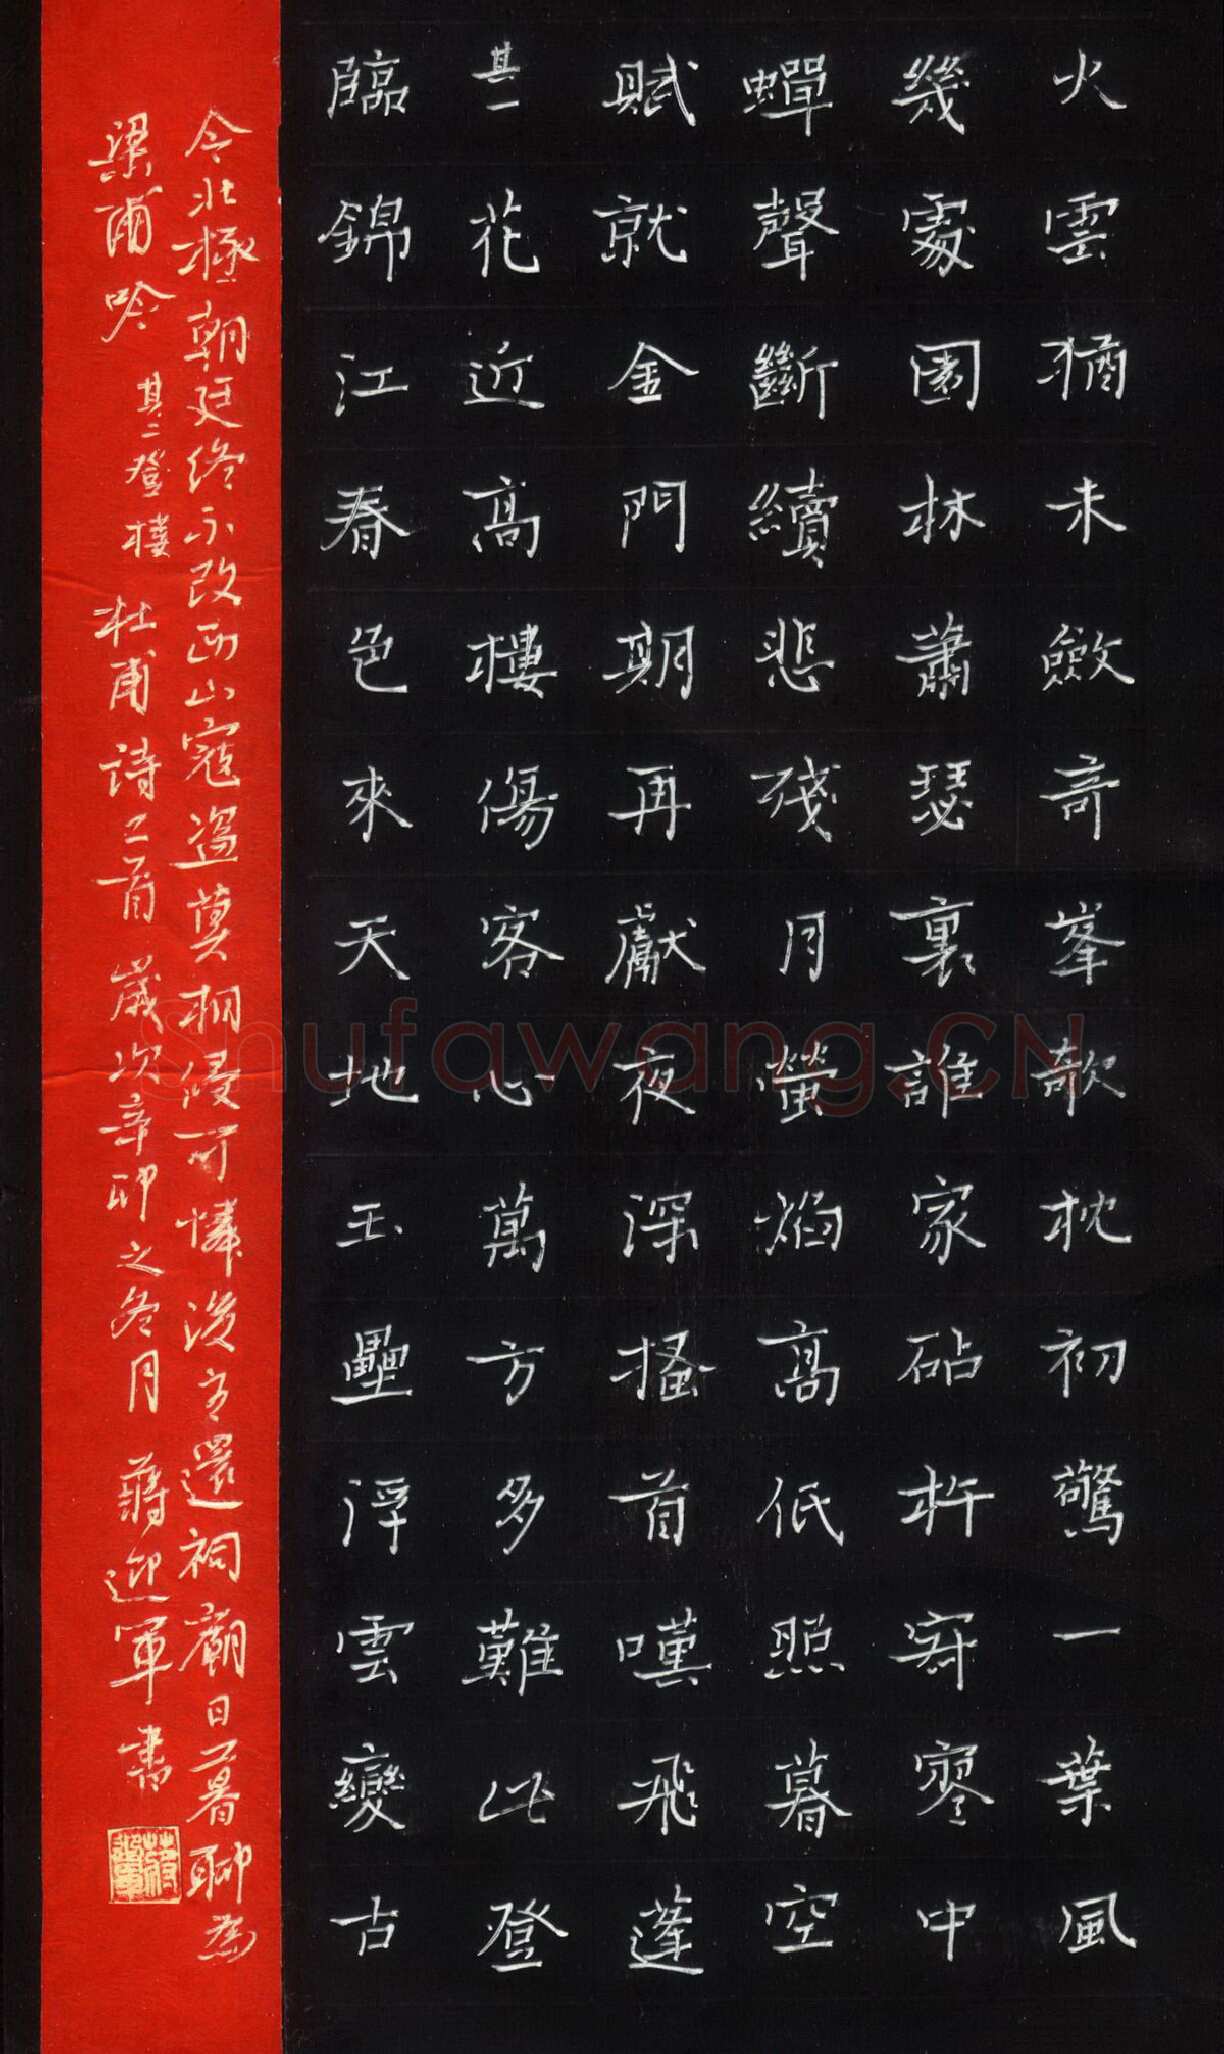 火雲猶未斂奇峯欹枕初驚一葉風
幾處園林蕭瑟裏誰家砧杵寂寥中
蟬聲斷續悲殘月螢焰高低照暮空
賦就金門期再獻夜深搔首嘆飛蓬
其一花近高樓傷客心萬方多難此登
臨錦江春色來天地玉壘浮雲變古
今北極朝廷終不改西山寇盜莫相侵可憐後主還祠廟日暮聊為
梁甫吟 其二登樓 杜甫詩二首 歲次辛卯之冬月 蔣迎軍書
Shufawang.CN